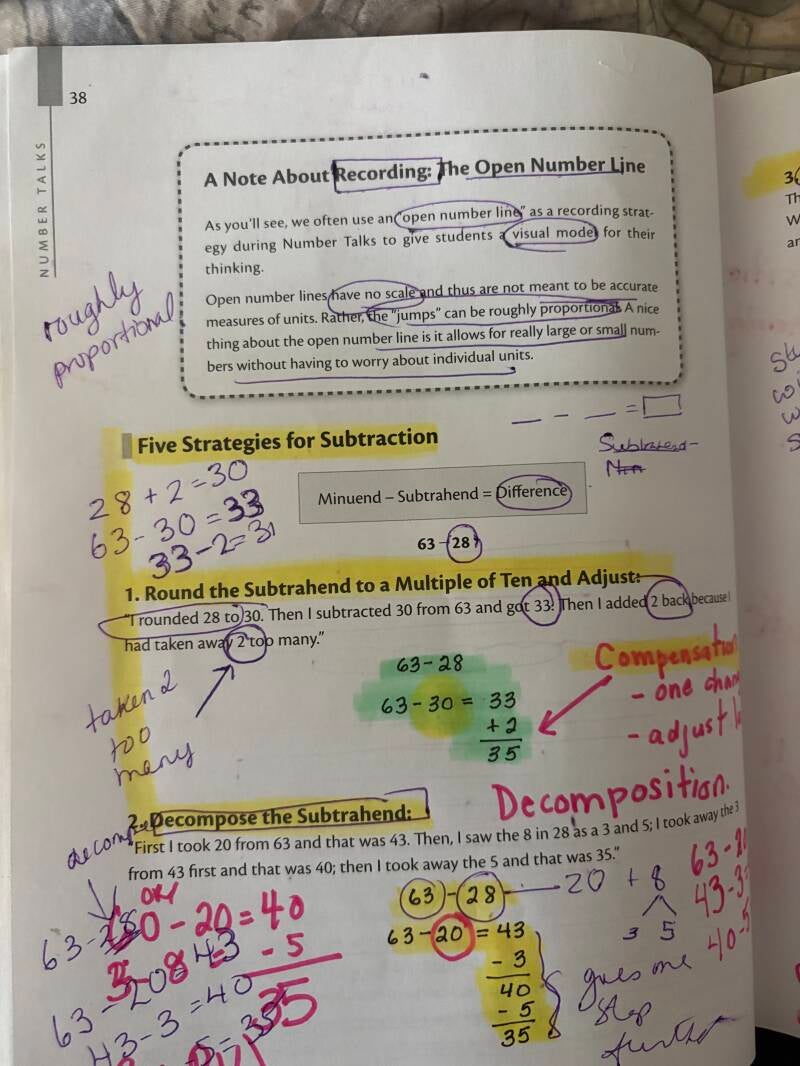 38
NUMBER TALKS
A Note About Recording: The Open Number Line
As you'll see, we often use an "open number line" as a recording strat-
egy during Number Talks to give students a visual model for their
thinking.
Open number lines have no scale and thus are not meant to be accurate
measures of units. Rather, the "jumps" can be roughly proportional. A nice
thing about the open number line is it allows for really large or small num-
bers without having to worry about individual units.
roughly
proportional
_ _ _ = □
Five Strategies for Subtraction
Subtrahend-
28 + 2 = 30
63 - 30 = 33
33 - 2 = 31
Minuend – Subtrahend = Difference
63 – 28
1. Round the Subtrahend to a Multiple of Ten and Adjust:
"I rounded 28 to 30. Then I subtracted 30 from 63 and got 33. Then I added 2 back because I
had taken away 2 too many."
taken 2
too
many
63 - 28
63 - 30 = 33
+ 2
35
- one
- adjust
Decomposition.
2. Decompose the Subtrahend:
"First I took 20 from 63 and that was 43. Then, I saw the 8 in 28 as a 3 and 5; I took away the 3
from 43 first and that was 40; then I took away the 5 and that was 35."
or
60 - 20 = 40
3 - 8 = - 5
35
63 - 28
63 - 20 = 43
43 - 3 = 40
5 = 35
63 - 28 20 + 8
3 5
63 - 20 = 43
- 3
40
- 5
35
goes one
step
further
63 - 20
43 - 3 =
40 - 5
3
Th
W
ar